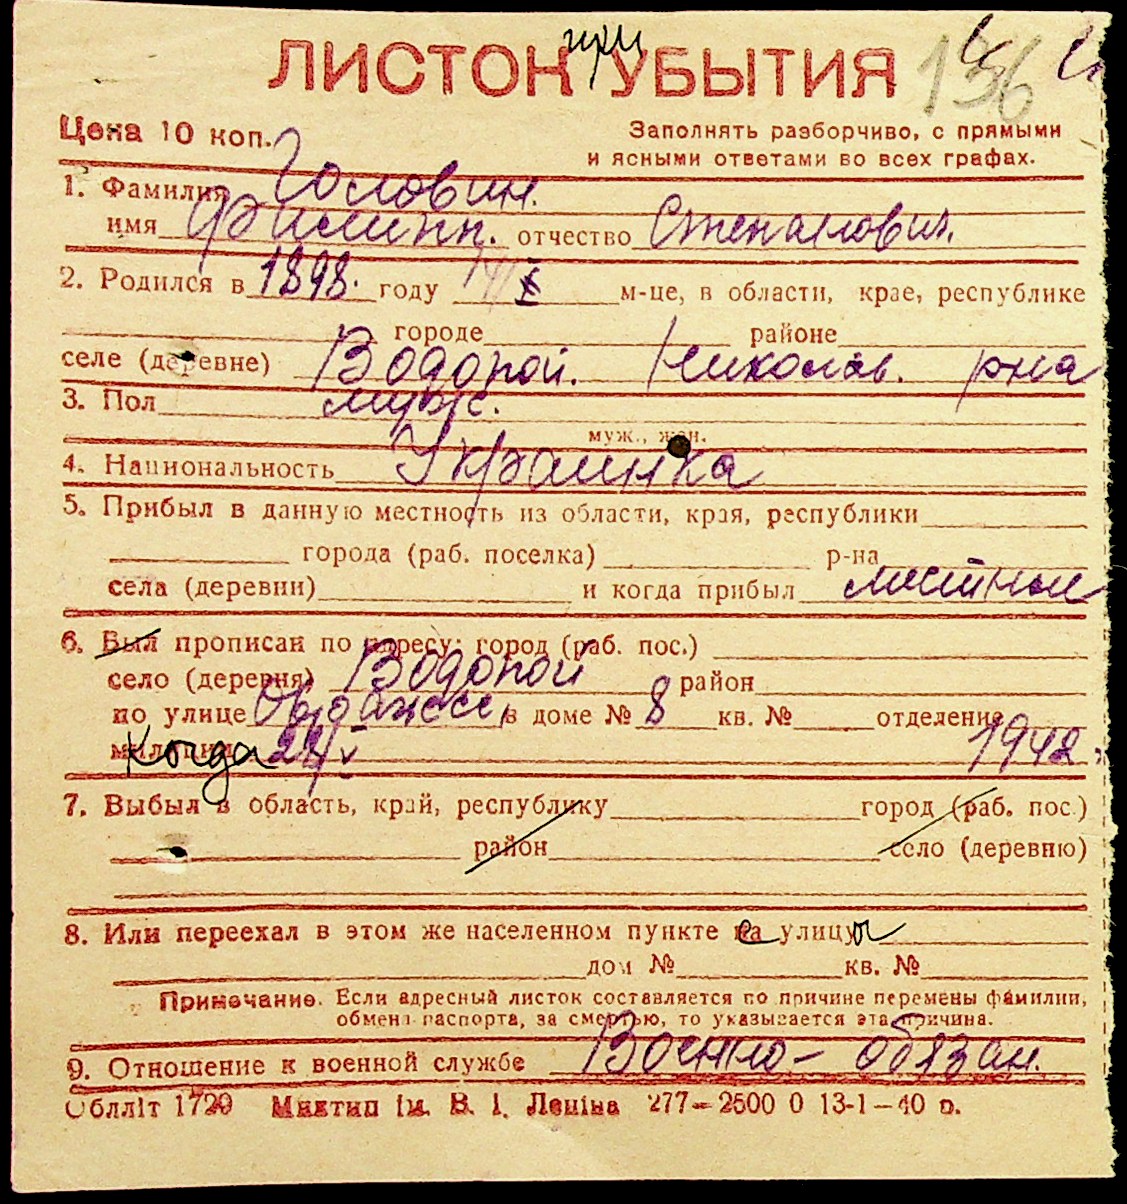 ЛИСТОК при УБЫТИЯ 156
Цена 10 коп.
Заполнять разборчиво, с прямыми
и ясными ответами во всех графах.
1. Фамилия Головин.
имя Филипп. отчество Степанович.
2. Родился в 1898. году м-це, в области, крае, республике
городе районе
селе (деревне) Водопой. Николаев. рна
3. Пол мужс.
муж., жен.
4. Национальность Украинка
5. Прибыл в данную местность из области, края, республики
города (раб. поселка) р-на
села (деревни) и когда прибыл местный
6. Был прописан по адресу: город (раб. пос.)
село (деревня) Водопой район
по улице в доме № 8 кв. № отделение
милиции Когда 24/V 1942.
7. Выбыл в область, край, республику город (раб. пос.)
район село (деревню)
8. Или переехал в этом же населенном пункте с улицы
дом № кв. №
Примечание. Если адресный листок составляется по причине перемены фамилии,
обмена паспорта, за смертью, то указывается эта причина.
9. Отношение к военной службе Военно-обязан.
Обллiт 1720 Миктип iм. В. I. Ленiна 277-2500 0 13-1-40 р.